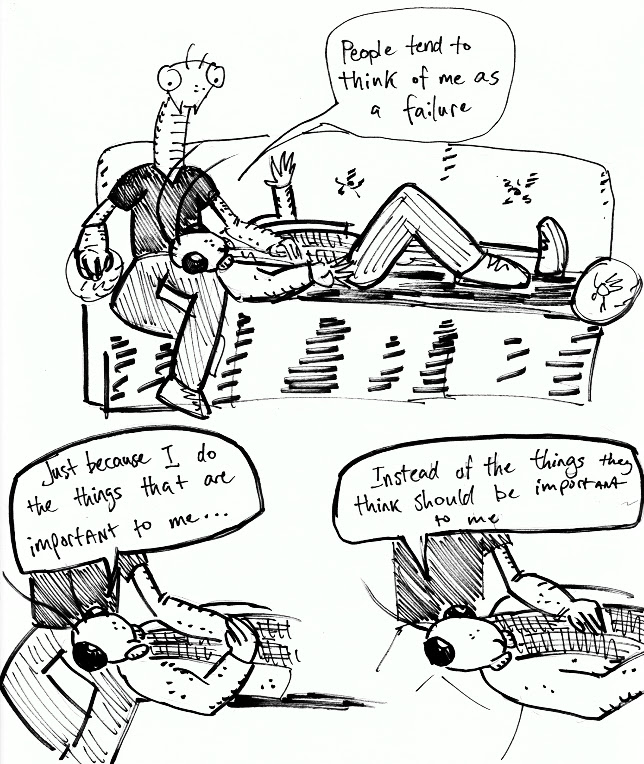 People tend to
think of me as
a failure
Just because I do
the things that are
important to me...
Instead of the things they
think should be important
to me